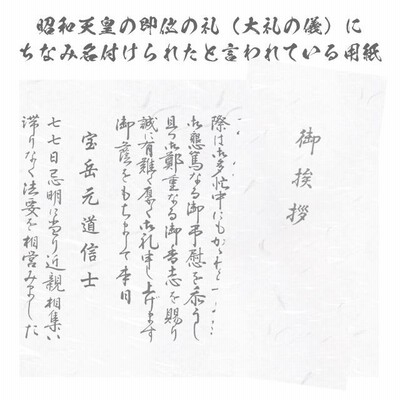 昭和天皇の即位の礼（大礼の儀）に
ちなみ名付けられたと言われている用紙
御挨拶
際は御多忙中にもかかわらず
御懇篤なる御弔慰を忝うし
且つ御鄭重なる御香志を賜り
誠に有難く厚く御礼申し上げます
御蔭をもちまして本日
宝岳元道信士
七七日忌明に当り近親相集い
滞りなく法要を相営みました